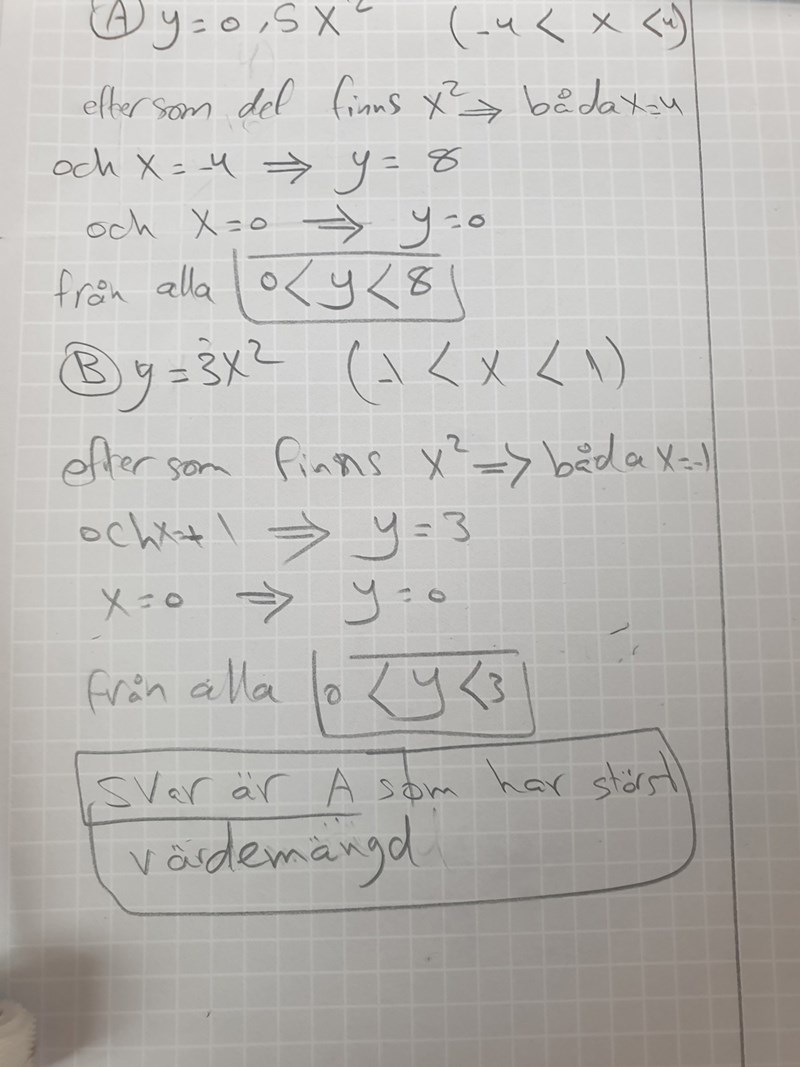 (A) y = 0,5x² (-4 < x < 4)
eftersom det finns x² ⇒ båda x=4
och x = -4 ⇒ y = 8
och x=0 ⇒ y=0
från alla 0 < y < 8
(B) y = 3x² (-1 < x < 1)
efter som finns x² ⇒ båda x=-1
och x=+1 ⇒ y = 3
x=0 ⇒ y=0
från alla 0 < y < 3
Svar är A som har störst
värdemängd